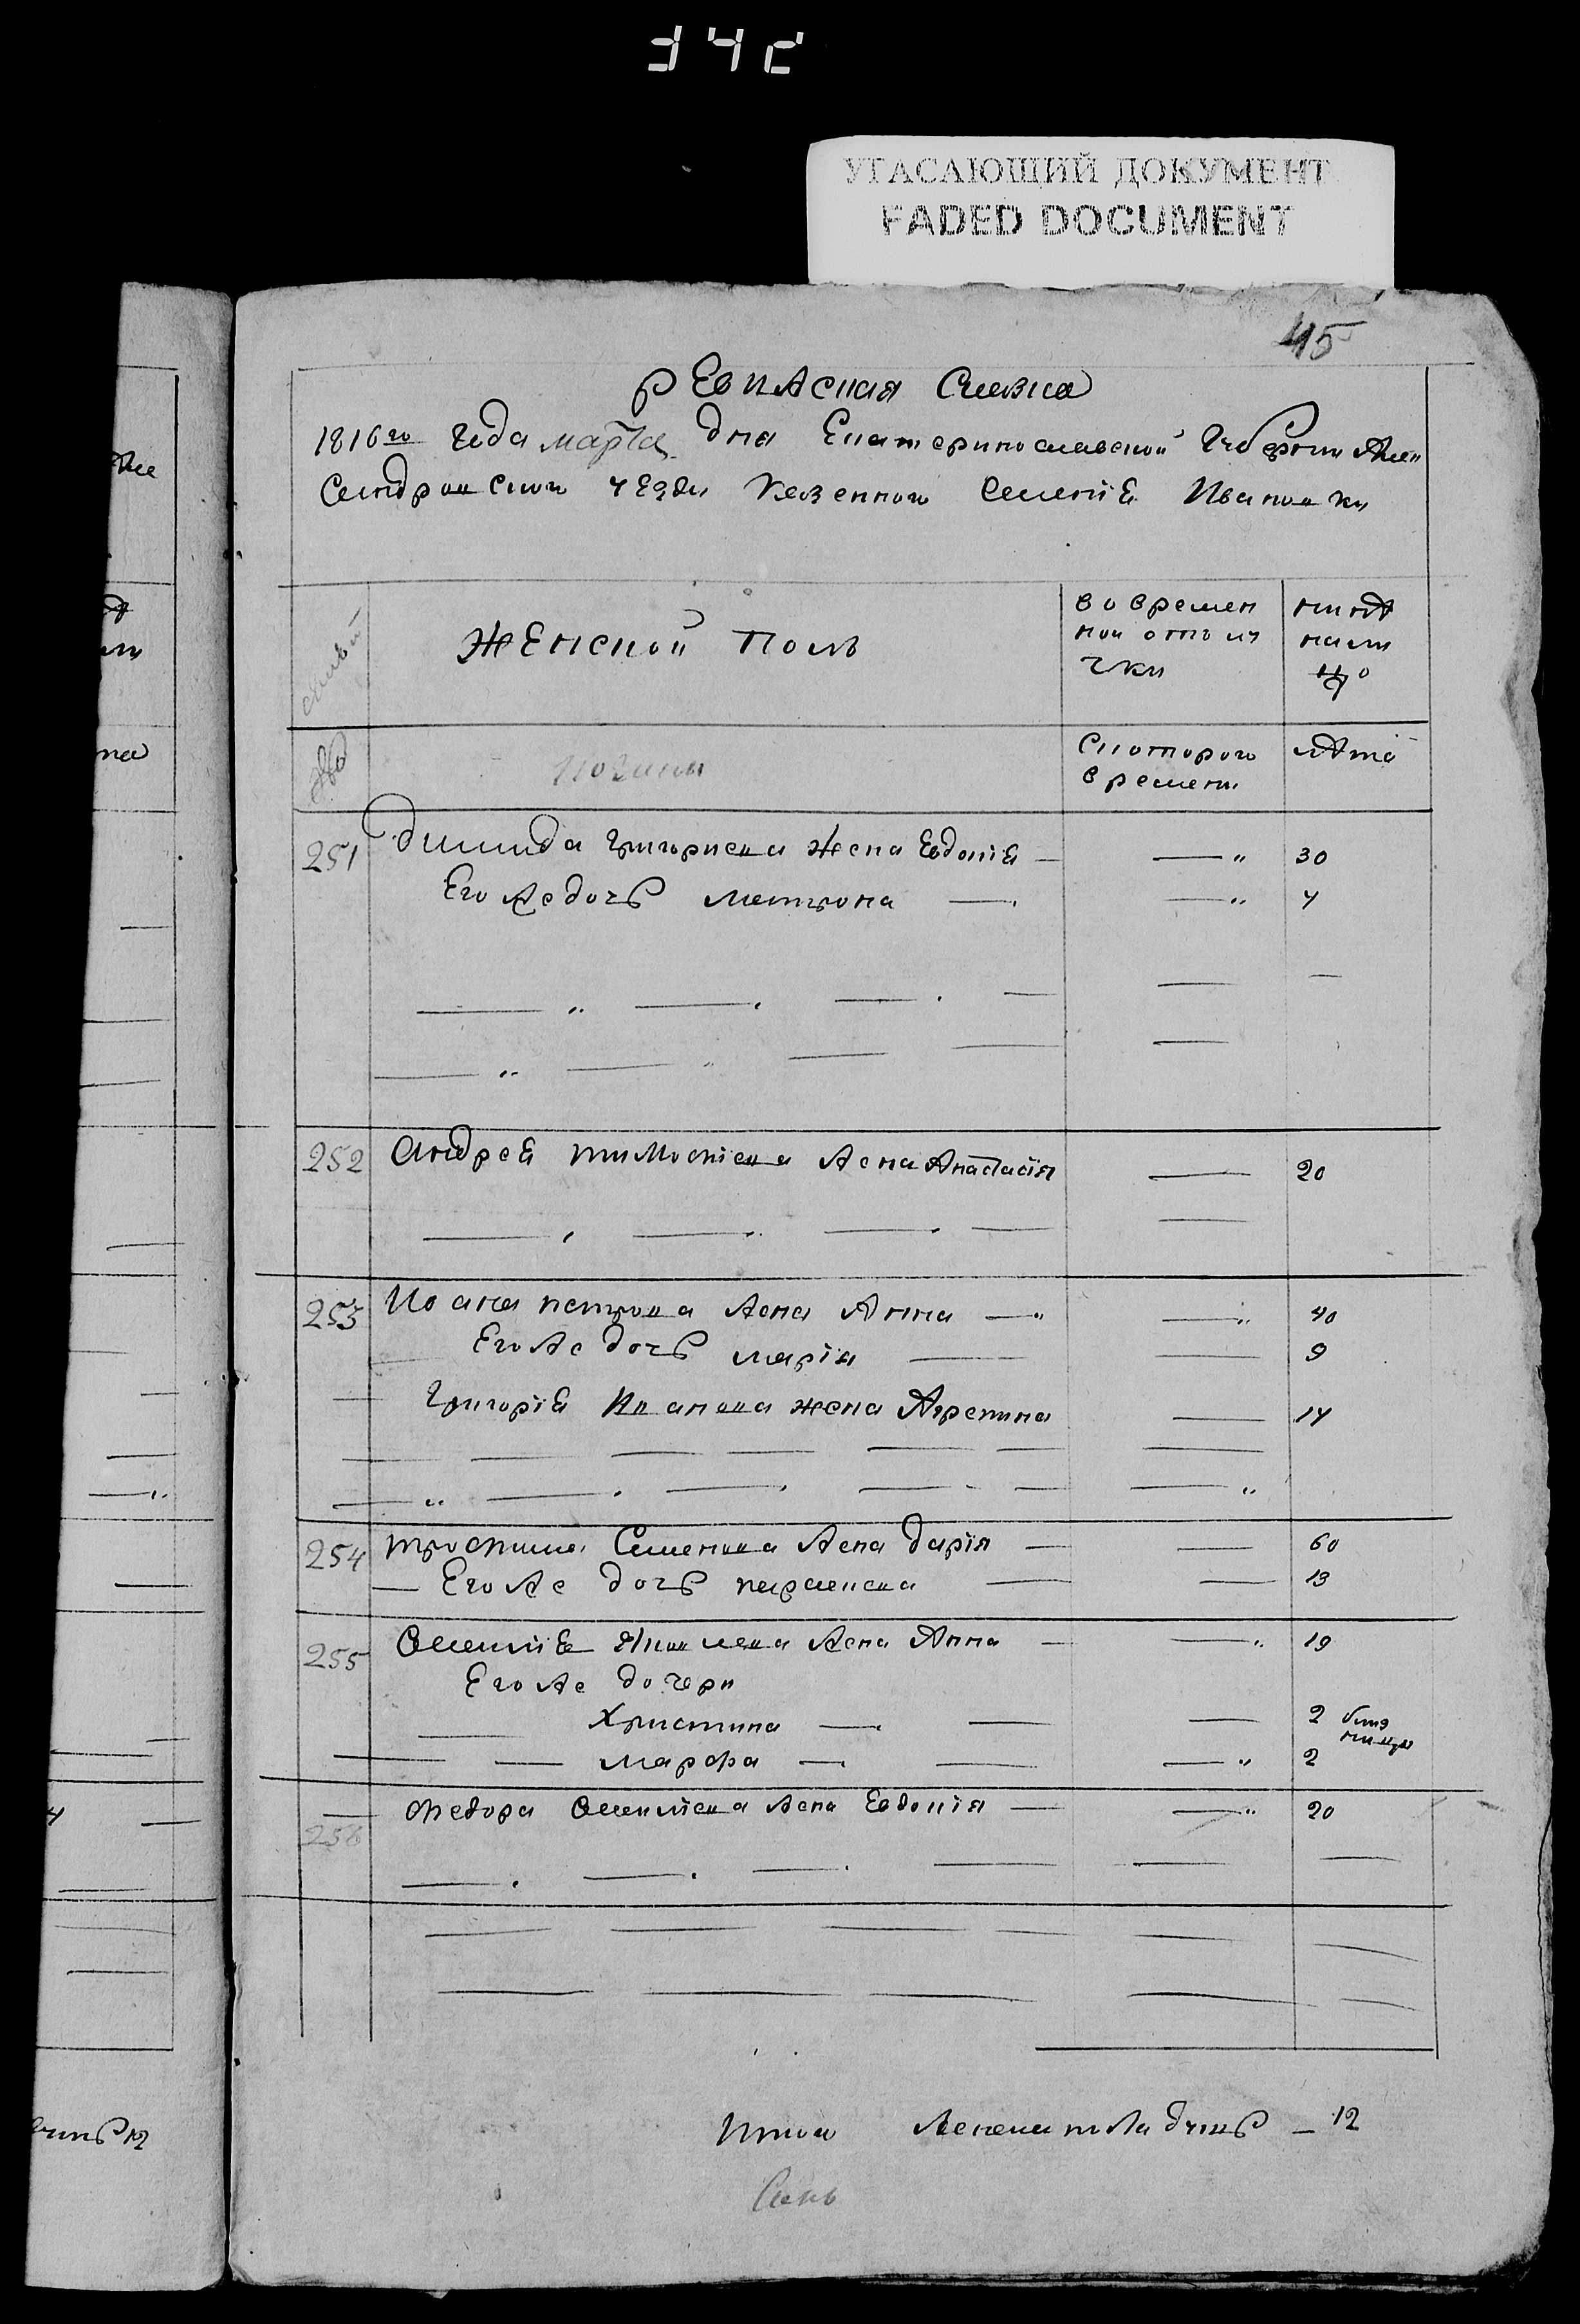 342
УГАСАЮЩИЙ ДОКУМЕНТ
FADED DOCUMENT
45
Ревизская Сказка
1816го Года марта дня Екатеринославской Губернии Алек
сандровского уезда Казенного Селения Ивановки
Женской Поль
во времен
ной отлу
чки
ныне
на ли
цо
Скоторого
времени
лета
251 Григориева жена Евдокия — — " 30
Его же дочь матрона — — " 4
252 Андрея тимофиева жена Анастасия — 20
253 Иоана петрова жена Анна — — " 40
Его же дочь мария — — 9
Григория Иванова жена Агрепина — 14
254 трофима Семенова жена дария — — 60
Его же дочь параскева — — 13
255 жена Анна — — " 19
Его же дочери
Христина — — — 2
марфа — — — " 2
256 Федора жена Евдокия — — " 20
Итого женска пола душь — 12